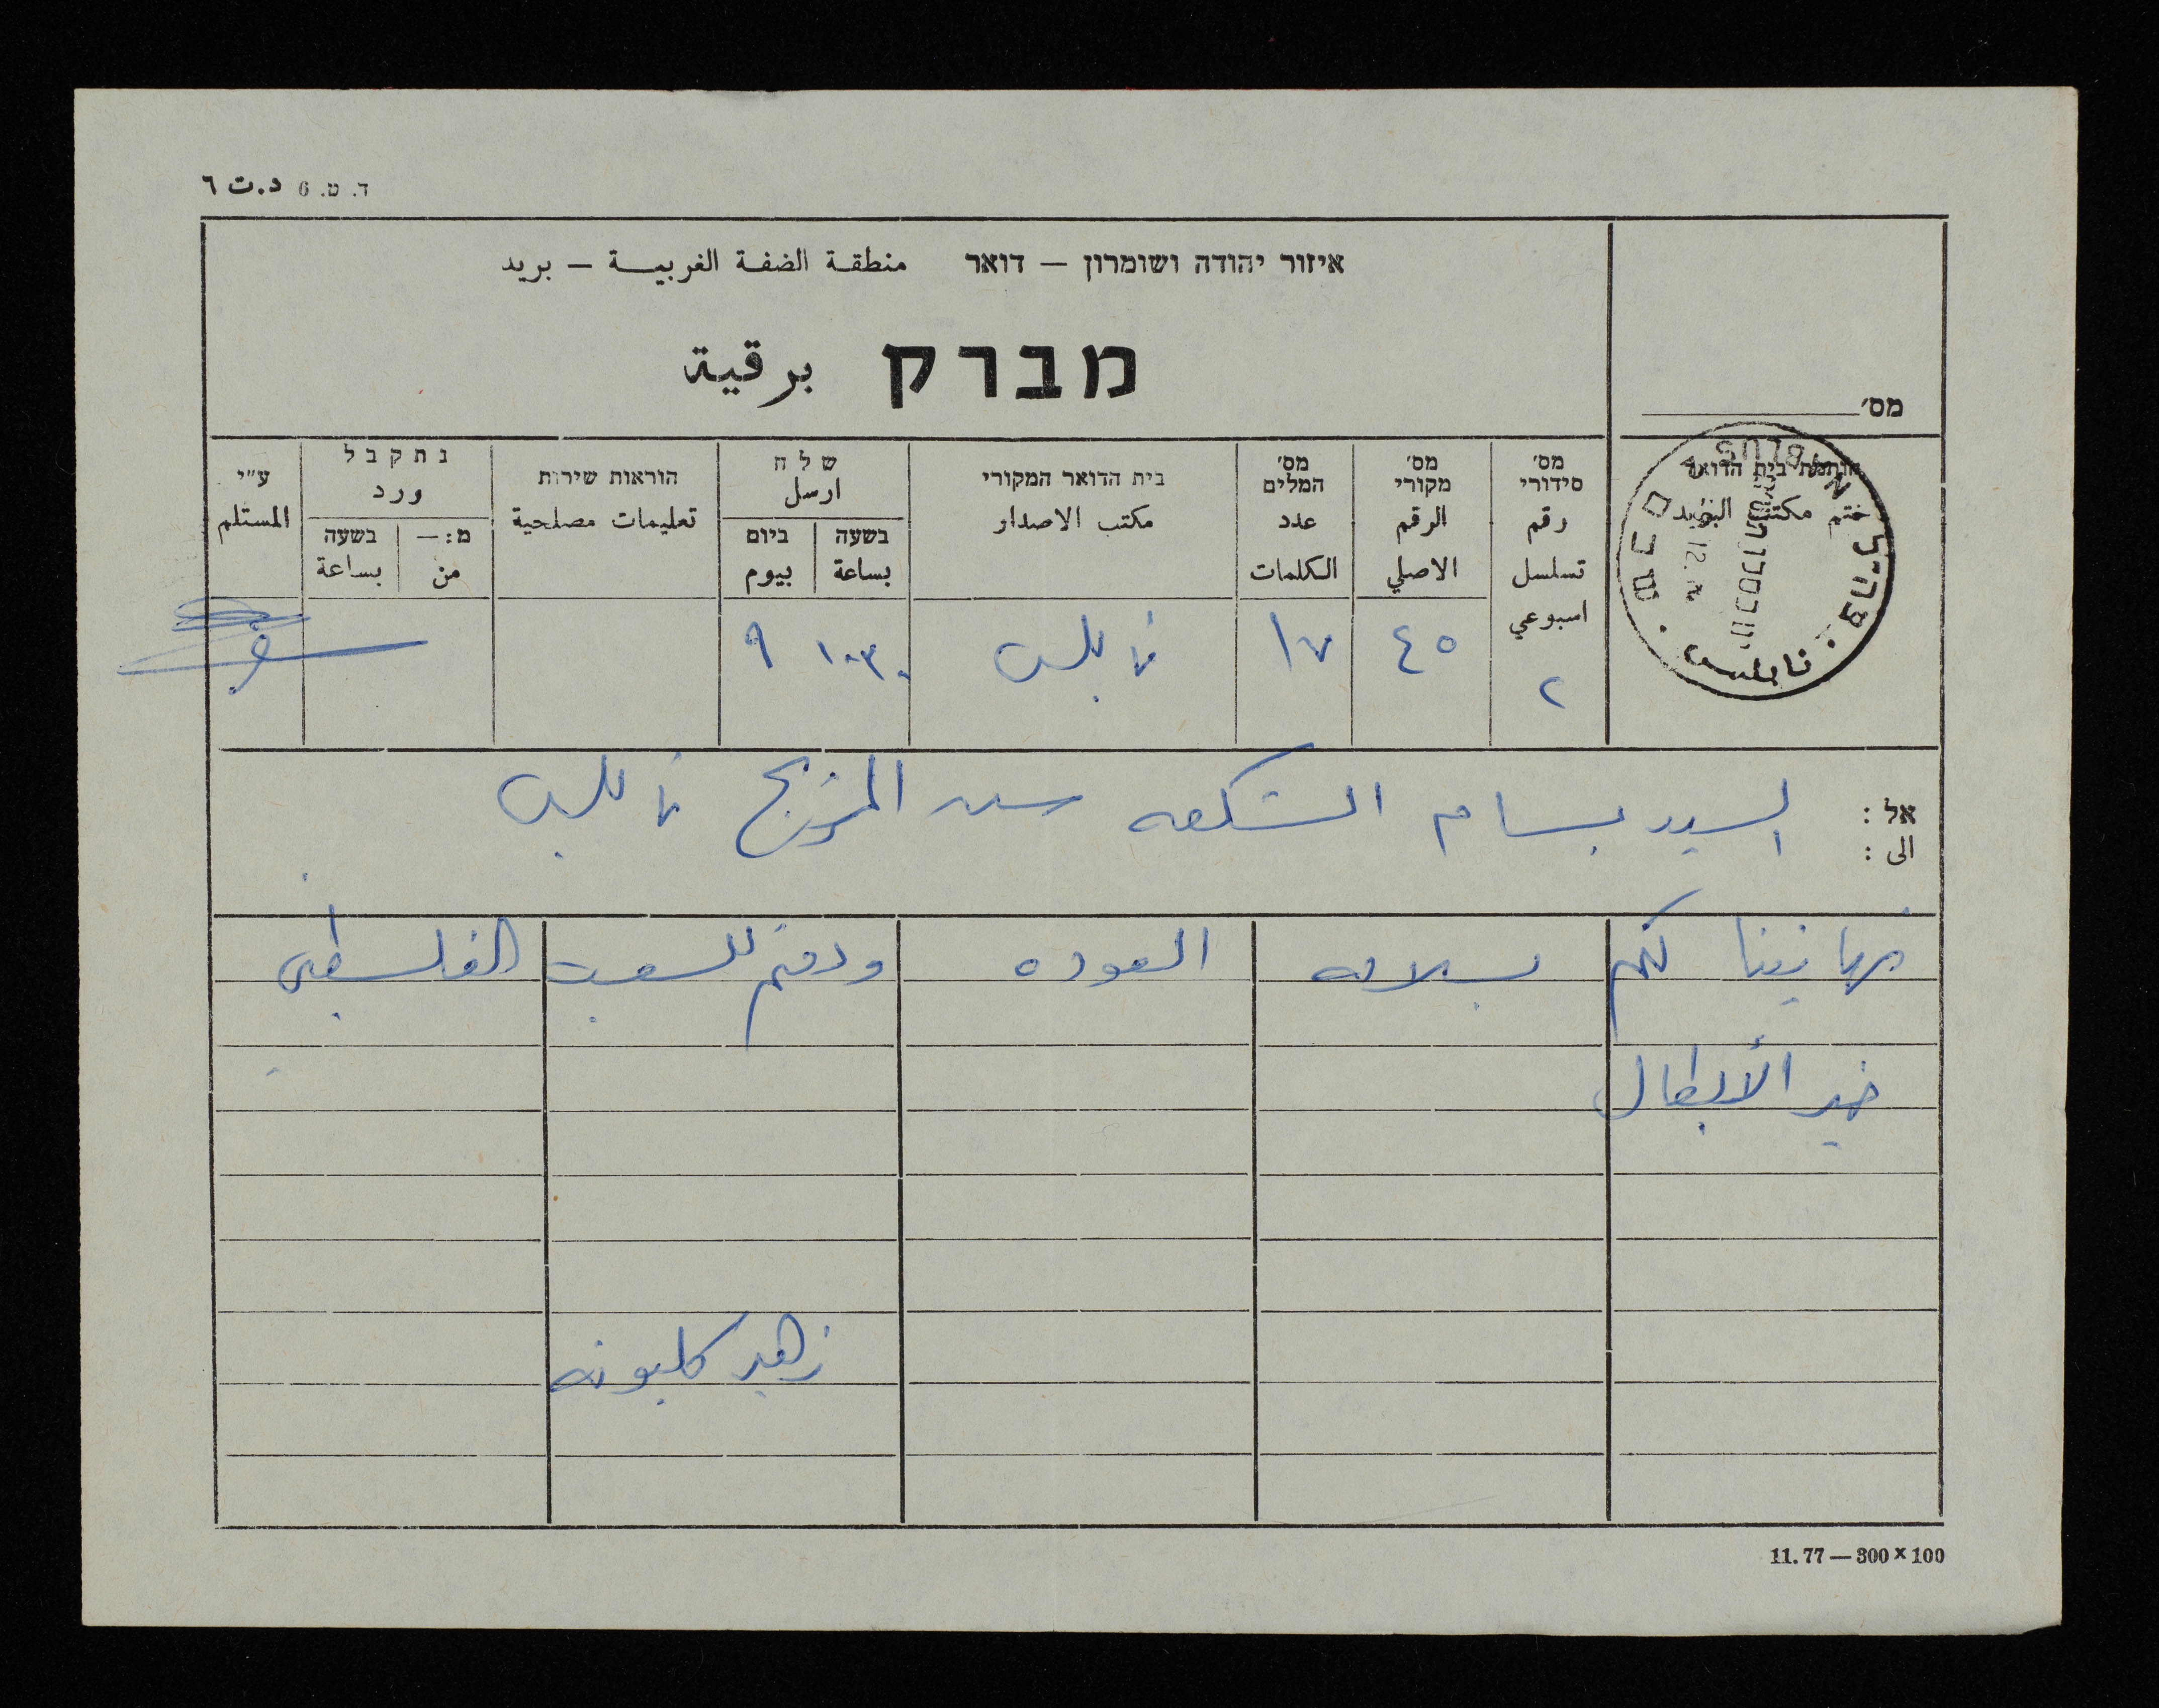 ד. ט. 6 د.ت ٦
איזור יהודה ושומרון — דואר منطقة الضفة الغربية — بريد
מברק برقية
מס׳
חותמת בית הדואר
ختم مكتب البريد
NABLUS
צה״ל
שכם
نابلس
מס׳ סידורי
رقم تسلسل اسبوعي
מס׳ מקורי
الرقم الاصلي
מס׳ המלים
عدد الكلمات
בית הדואר המקורי
مكتب الاصدار
שלח
ارسل
בשעה
بساعة
ביום
بيوم
הוראות שירות
تعليمات مصلحية
נתקבל
ورد
מ: —
من
בשעה
بساعة
ע״י
المستلم
٢ ٤٥ ١٧ نابلس ١٠٣٠ ٩
אל :
الى :
السيد بسام الشكعه نابلس
تهانينا لكم بسلامه العوده ودمتم للشعب الفلسطيني
خير الأبطال
زهير كلبونه
11.77 — 300 × 100